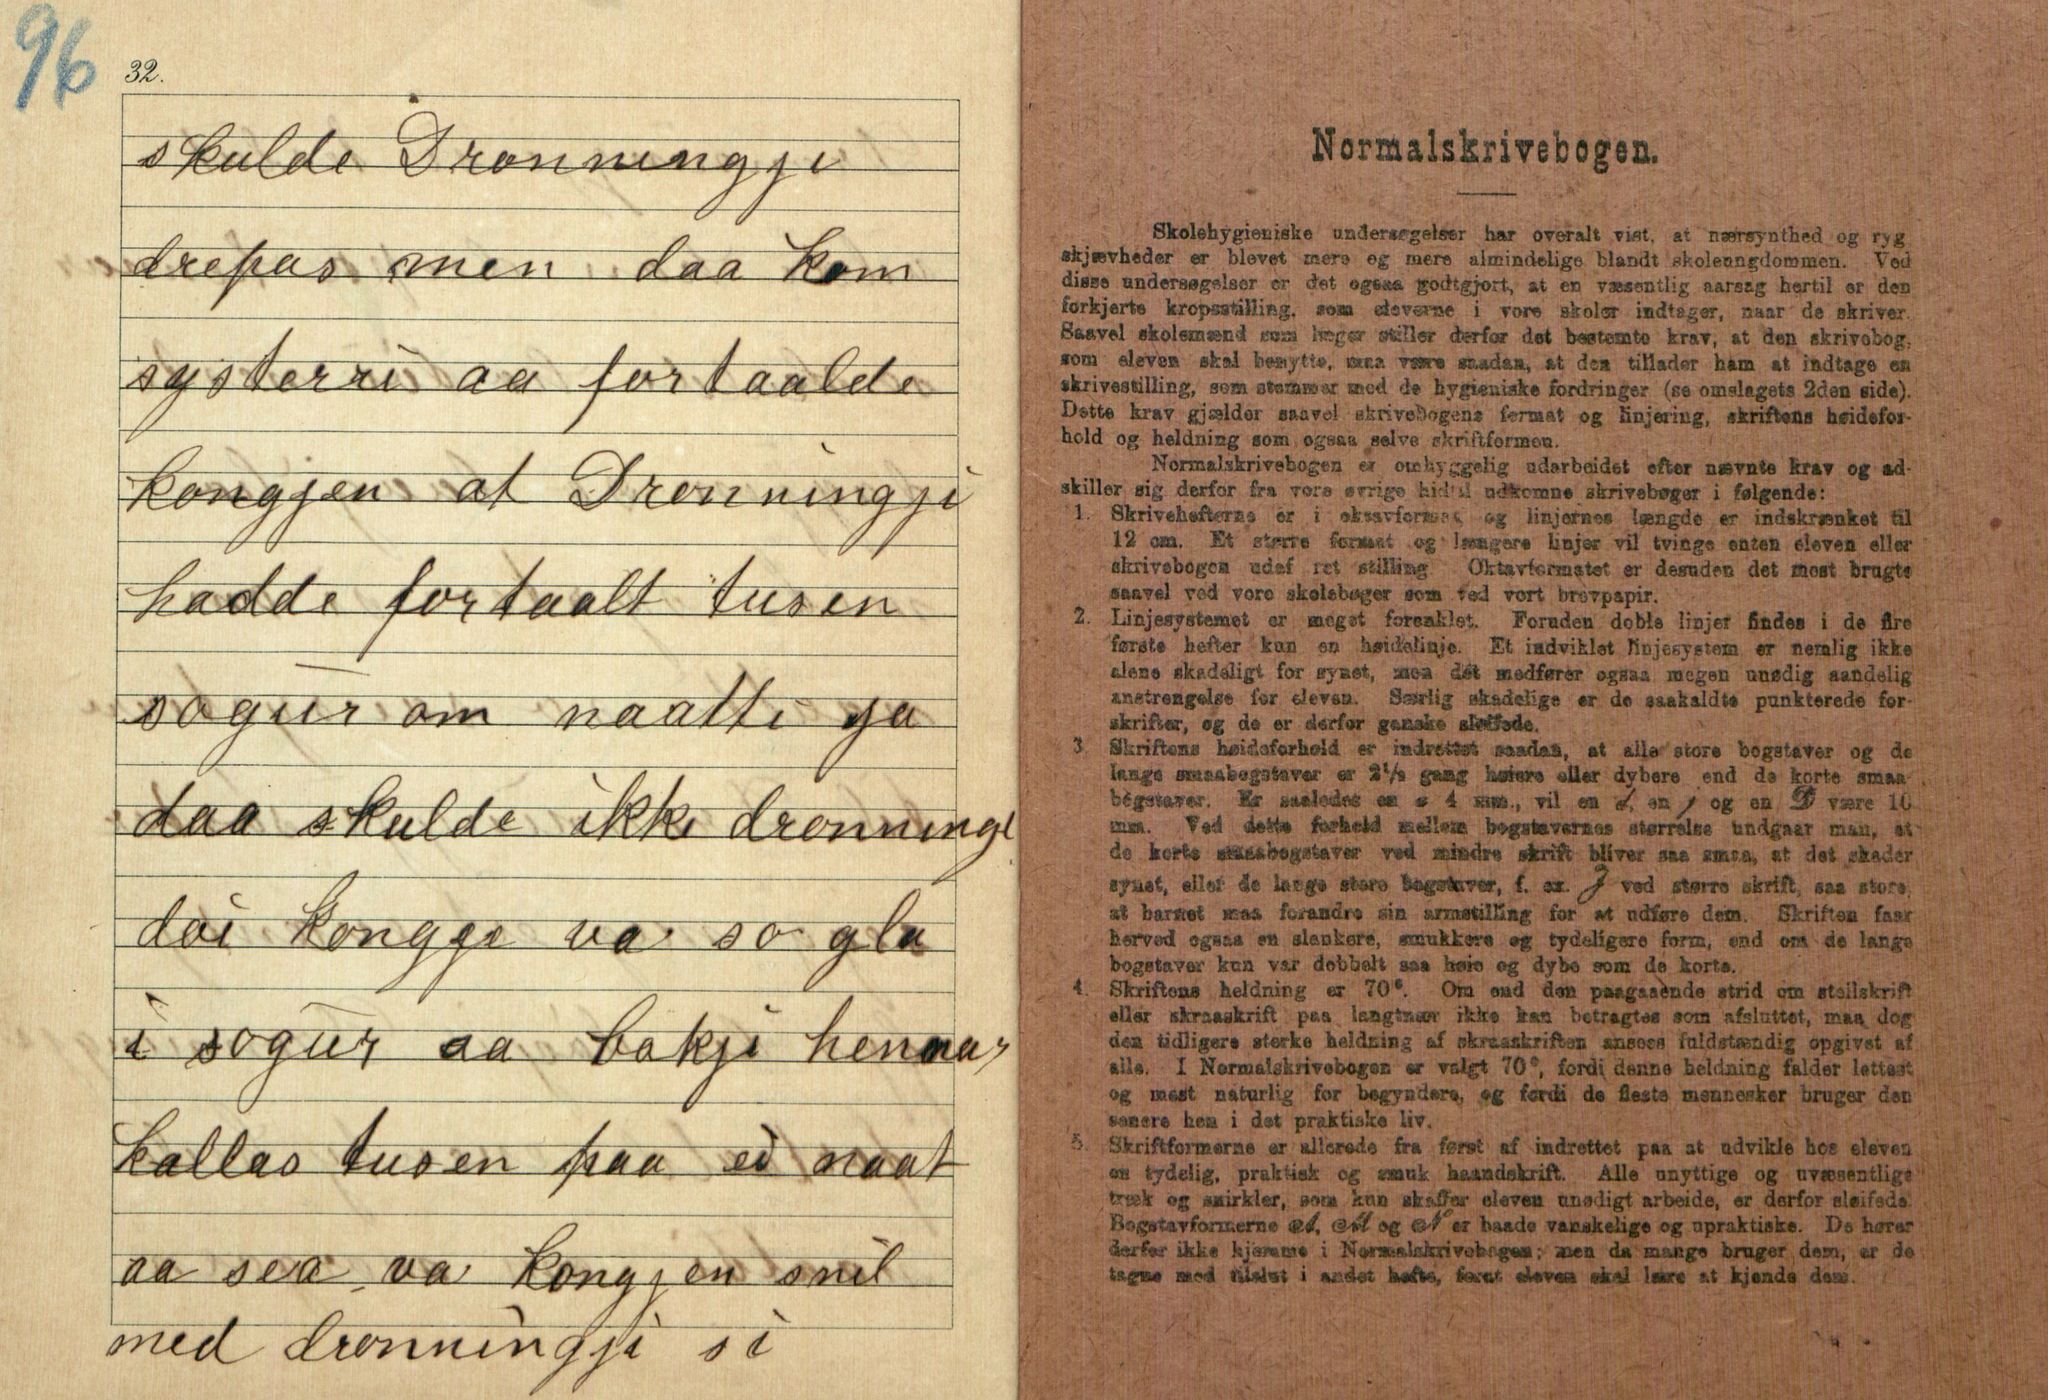 96
32.
skulde Dronningji
drepas men daa kom
systerri aa fortaalde
kongjen at Dronningji
hadde fortaalt tusen
sogur om naatti ja
daa skulde ikki dronningi
döi kongge va so gla
i sogur aa bokji hennar
kallas tusen paa ei naat
aa sea va kongjen snil
med dronningji si
Normalskrivebogen.
Skolehygieniske undersøgelser har overalt vist, at nærsynthed og ryg
skjævheder er blevet mere og mere almindelige blandt skoleungdommen. Ved
disse undersøgelser er det ogsaa godtgjort, at en væsentlig aarsag hertil er den
forkjerte kropsstilling, som eleverne i vore skoler indtager, naar de skriver.
Saavel skolemænd som læger stiller derfor det bestemte krav, at den skrivebog,
som eleven skal benytte, maa være saadan, at den tillader ham at indtage en
skrivestilling, som stemmer med de hygieniske fordringer (se omslagets 2den side).
Dette krav gjælder saavel skrivebogens format og linjering, skriftens høidefor-
hold og heldning som ogsaa selve skriftformen.
Normalskrivebogen er omhyggelig udarbeidet efter nævnte krav og ad-
skiller sig derfor fra vore øvrige hidtil udkomne skrivebøger i følgende:
1. Skrivehefterne er i oktavformat og linjernes længde er indskrænket til
12 cm. Et større format og længere linjer vil tvinge enten eleven eller
skrivebogen udaf ret stilling Oktavformatet er desuden det mest brugte
saavel ved vore skolebøger som ved vort brevpapir.
2. Linjesystemet er meget forenklet. Foruden doble linjer findes i de fire
første hefter kun en høidelinje. Et indviklet linjesystem er nemlig ikke
alene skadeligt for synet, men det medfører ogsaa megen unødig aandelig
anstrengelse for eleven. Særlig skadelige er de saakaldte punkterede for-
skrifter, og de er derfor ganske sløifede.
3. Skriftens høideforhold er indrettet saadan, at alle store bogstaver og de
lange smaabogstaver er 2½ gang høiere eller dybere end de korte smaa
bogstaver. Er saaledes en s 4 mm., vil en d, en j og en D være 10
mm. Ved dette forhold mellem bogstavernes størrelse undgaar man, at
de korte smaabogstaver ved mindre skrift bliver saa smaa, at det skader
synet, eller de lange store bogstaver, f. ex. J ved større skrift, saa store,
at barnet maa forandre sin armstilling for at udføre dem. Skriften faar
herved ogsaa en slankere, smukkere og tydeligere form, end om de lange
bogstaver kun var dobbelt saa høie og dybe som de korte.
4. Skriftens heldning er 70°. Om end den paagaaende strid om steilskrift
eller skraaskrift paa langtnær ikke kan betragtes som afsluttet, maa dog
den tidligere sterke heldning af skraaskriften ansees fuldstændig opgivet af
alle. I Normalskrivebogen er valgt 70°, fordi denne heldning falder lettest
og mest naturlig for begyndere, og fordi de fleste mennesker bruger den
senere hen i det praktiske liv.
5. Skriftformerne er allerede fra først af indrettet paa at udvikle hos eleven
en tydelig, praktisk og smuk haandskrift. Alle unyttige og uvæsentlige
træk og snirkler, som kun skaffer eleven unødigt arbeide, er derfor sløifede.
Bogstavformerne A, M og N er baade vanskelige og upraktiske. De hører
derfor ikke hjemme i Normalskrivebogen; men da mange bruger dem, er de
tagne med tilslut i andet hefte, forat eleven skal lære at kjende dem.